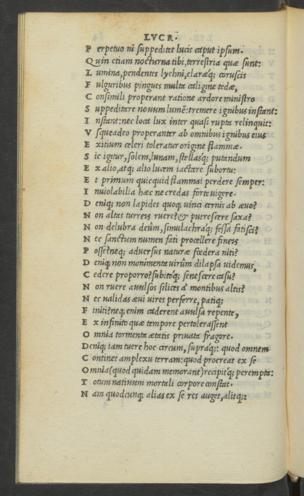 LVCR.
P erpetuo ni suppeditet lucis caput ipsum.
Q uin etiam nocturna tibi, terrestria quæ sunt:
L umina, pendentes lychni, claræq; coruscis
F ulguribus pingues multa caligine tedæ,
C onsimili properant ratione ardore ministro
S uppeditere nouum lumẽ. tremere ignibus instant:
I nstant: nec loca lux inter quasi rupta relinquit:
V squeadeo properanter ab omnibus ignibus eius
E xitium celeri toleratur origine flammæ.
S ic igitur, solem, lunam, stellasq; putendum
E x alio, atq; alio lucem iactare subortu:
E t primum quicquid flammai perdere semper:
I nuiolabilia hæc ne credas forte uigere.
D eniq; non lapides quoq; uinci cernis ab æuo?
N on altas turreis ruere? & putrescere saxa?
N on delubra deûm, simulachraq; fessa fatisci?
N ec sanctum numen fati protollere fineis
P osse? neq; aduersus naturæ fœdera niti?
D eniq; non monimenta uirûm dilapsa uidemus,
C edere proporro? subitoq; senescere casu?
N on ruere auulsos silices à montibus altis?
N ec ualidas æui uires perferre, patiq;
F initi? neq; enim caderent auulsa repente,
E x infinito quæ tempore pertolerassent
O mnia tormenta ætatis priuata fragore.
D eniq; iam tuere hoc circum, supraq;: quod omnem
C ontinet amplexu terram: quod procreat ex se
O mnia (quod quidam memorant) recipitq; perempta:
T otum natiuum mortali corpore constat.
N am quodcunq; alias ex se res auget, alitq;: